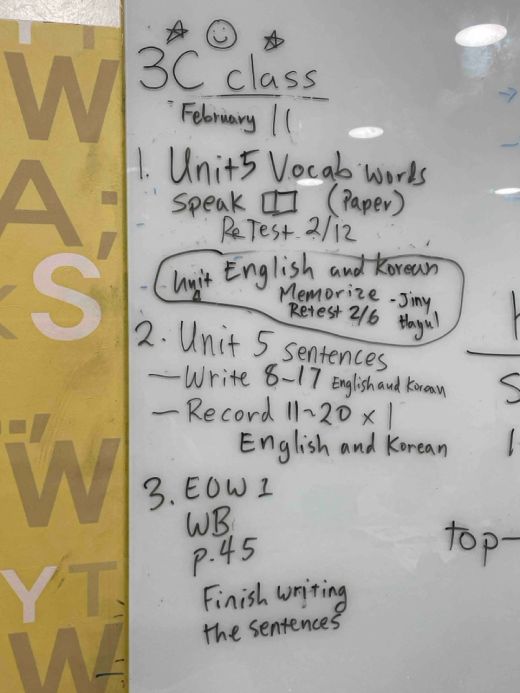 3C class
February 11
1. Unit 5 Vocab words
speak (Paper)
ReTest 2/12
Unit English and Korean
Memorize - Jiny
Retest 2/6 Hayul
2. Unit 5 sentences
— Write 8~17 English and Korean
— Record 11~20 x 1
English and Korean
3. EOW 1
WB
p.45
Finish writing
the sentences
top-
Y T
W
A;
S
W
Y T
W